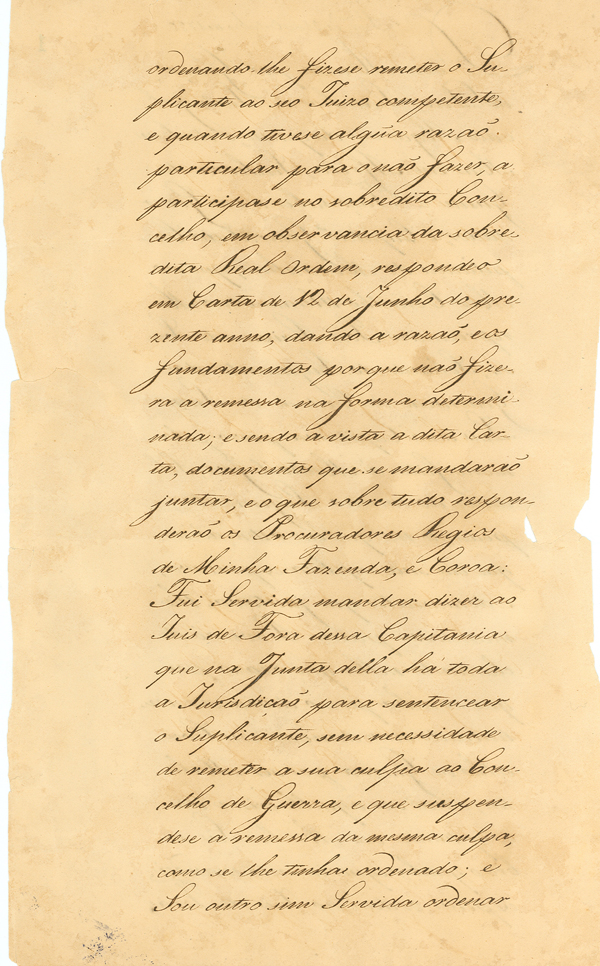 ordenando-lhe fizese remeter o Su-
plicante ao seo Juizo competente,
e quando tivese algũa razaõ
particular para o naõ fazer, a
participase no sobredito Con-
celho, em observancia da sobre-
dita Real Ordem, respondeo
em Carta de 12 de Junho do pre-
zente anno, dando a razaõ, e os
fundamentos porque naõ fize-
ra a remessa na forma determi-
nada; e sendo a vista a dita Car-
ta, documentos que se mandaraõ
juntar, e o que sobre tudo respon-
deraõ os Procuradores Regios
de Minha Fazenda, e Coroa:
Fui Servida mandar dizer ao
Juis de Fora dessa Capitania
que na Junta della há toda
a Jurisdiçaõ para sentencear
o Suplicante, sem necessidade
de remeter a sua culpa ao Con-
celho de Guerra, e que suspen-
dese a remessa da mesma culpa,
como se lhe tinha ordenado; e
Sou outro sim Servida ordenar